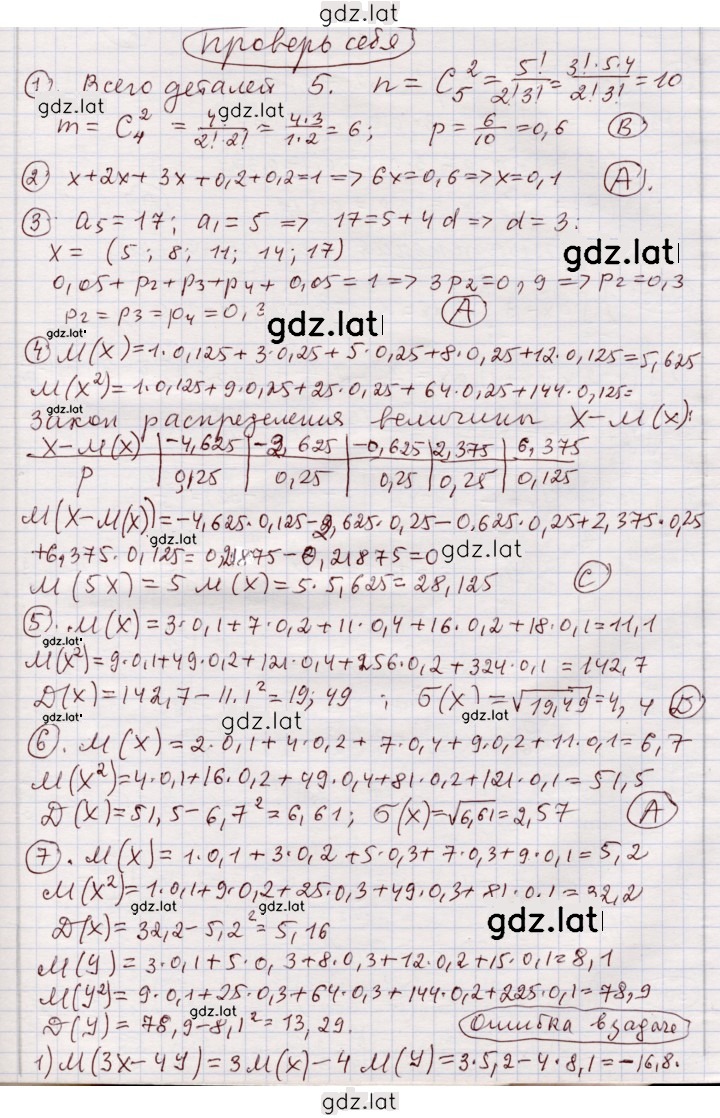 gdz.lat
проверь себя
1). Всего деталей 5. n = C₅² = 5!/2!3! = 3!·5·4/2!3! = 10
gdz.lat gdz.lat
m = C₄² = 4!/2!·2! = 4·3/1·2 = 6; p = 6/10 = 0,6 (B)
2) x+2x+3x+0,2+0,2=1 => 6x=0,6 => x=0,1 (A).
3) a₅=17; a₁=5 => 17=5+4d => d=3.
x = (5; 8; 11; 14; 17) gdz.lat
0,05+p₂+p₃+p₄+0,05=1 => 3p₂=0,9 => p₂=0,3
p₂=p₃=p₄=0,3 gdz.lat (A)
gdz.lat
4) M(X)=1·0,125+3·0,25+5·0,25+8·0,25+12·0,125=5,625
M(X²)=1·0,125+9·0,25+25·0,25+64·0,25+144·0,125=
Закон распределения величины X-M(X):
gdz.lat gdz.lat
X-M(X) | -4,625 | -2,625 | -0,625 | 2,375 | 6,375
p | 0,125 | 0,25 | 0,25 | 0,25 | 0,125
M(X-M(X))=-4,625·0,125-2,625·0,25-0,625·0,25+2,375·0,25
+6,375·0,125=0,21875-0,21875=0 gdz.lat
M(5X)=5M(X)=5·5,625=28,125 (C)
5). M(X)=3·0,1+7·0,2+11·0,4+16·0,2+18·0,1=11,1
gdz.lat
M(X²)=9·0,1+49·0,2+121·0,4+256·0,2+324·0,1=142,7
D(X)=142,7-11.1²=19,49; б(X)=√19,49=4,4 (D)
gdz.lat gdz.lat gdz.lat
6). M(X)=2·0,1+4·0,2+7·0,4+9·0,2+11·0,1=6,7
M(X²)=4·0,1+16·0,2+49·0,4+81·0,2+121·0,1=51,5
D(X)=51,5-6,7²=6,61; б(X)=√6,61=2,57 (A)
7). M(X)=1·0,1+3·0,2+5·0,3+7·0,3+9·0,1=5,2
M(X²)=1·0,1+9·0,2+25·0,3+49·0,3+81·0.1=32,2
gdz.lat gdz.lat
D(X)=32,2-5,2²=5,16 gdz.lat
M(Y)=3·0,1+5·0,3+8·0,3+12·0,2+15·0,1=8,1
M(Y²)=9·0,1+25·0,3+64·0,3+144·0,2+225·0,1=78,9
gdz.lat
D(Y)=78,9-8,1²=13,29. Ошибка в задаче
1) M(3X-4Y)=3M(X)-4M(Y)=3·5,2-4·8,1=-16,8.
gdz.lat